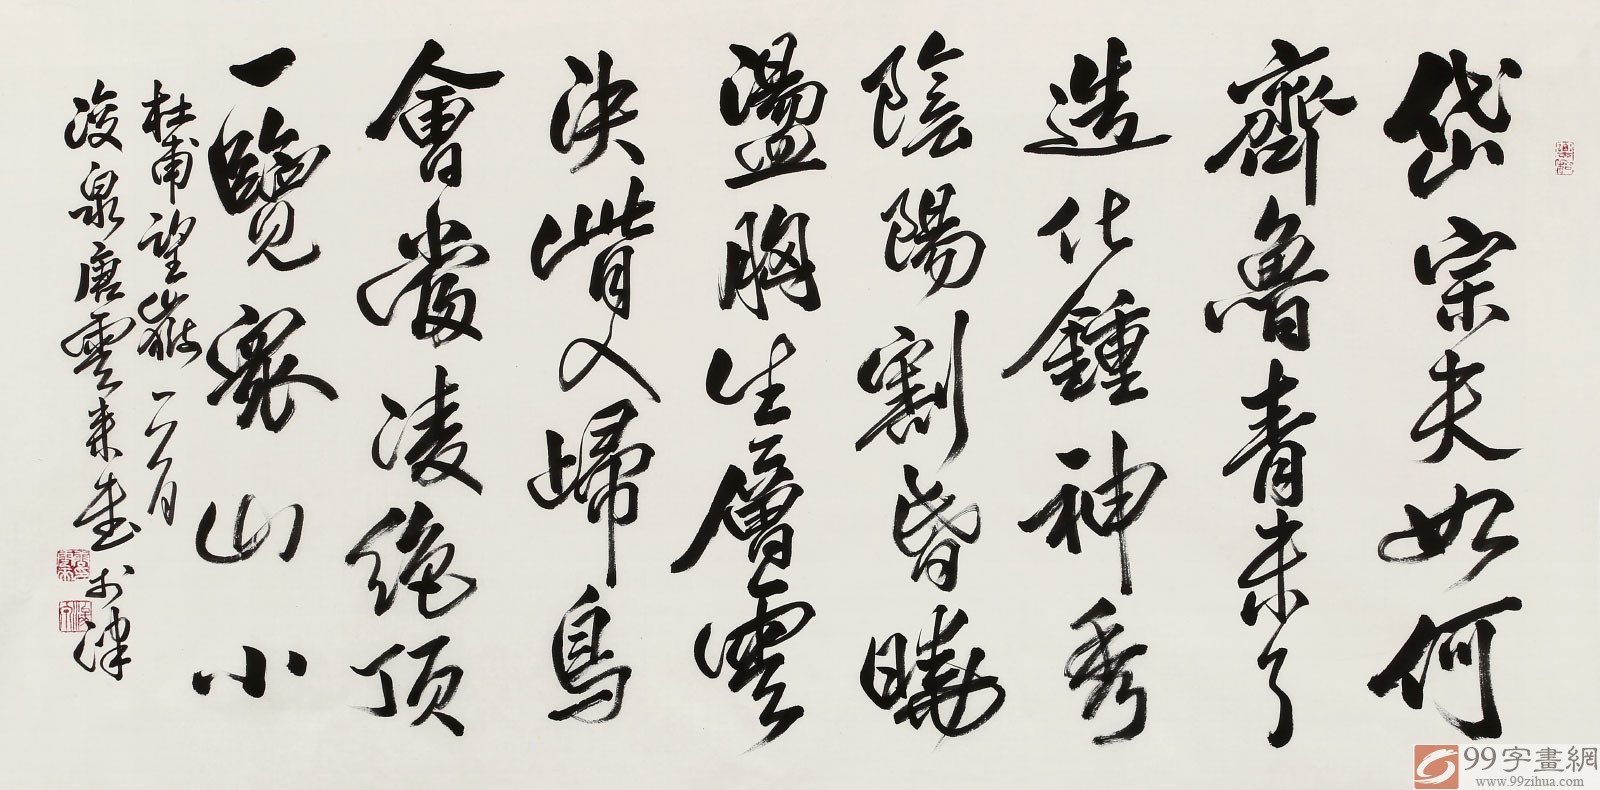 岱宗夫如何
齊魯青未了
造化鍾神秀
陰陽割昏曉
盪胸生層雲
決眥入歸鳥
會當凌絕頂
一覽眾山小
杜甫望嶽 一六月
浚泉唐雲來書於津
99字畫網
www.99zihua.com